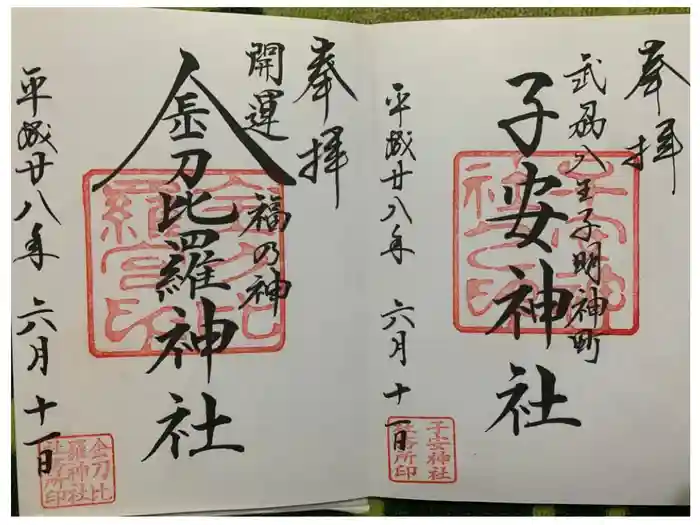 奉拝
武州八王子明神町
子安神社
平成廿八年 六月十一日
子安神社
社務所印
奉拝
開運
福の神
金刀比羅神社
平成廿八年 六月十一日
金刀比
羅神社
社務所印